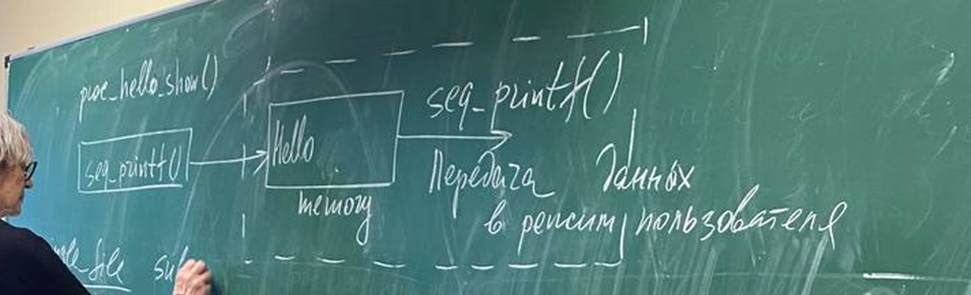 proc_hello_show()
seq_printf()
Hello
memory
seq_printf()
Передача данных
в режим пользователя
_file